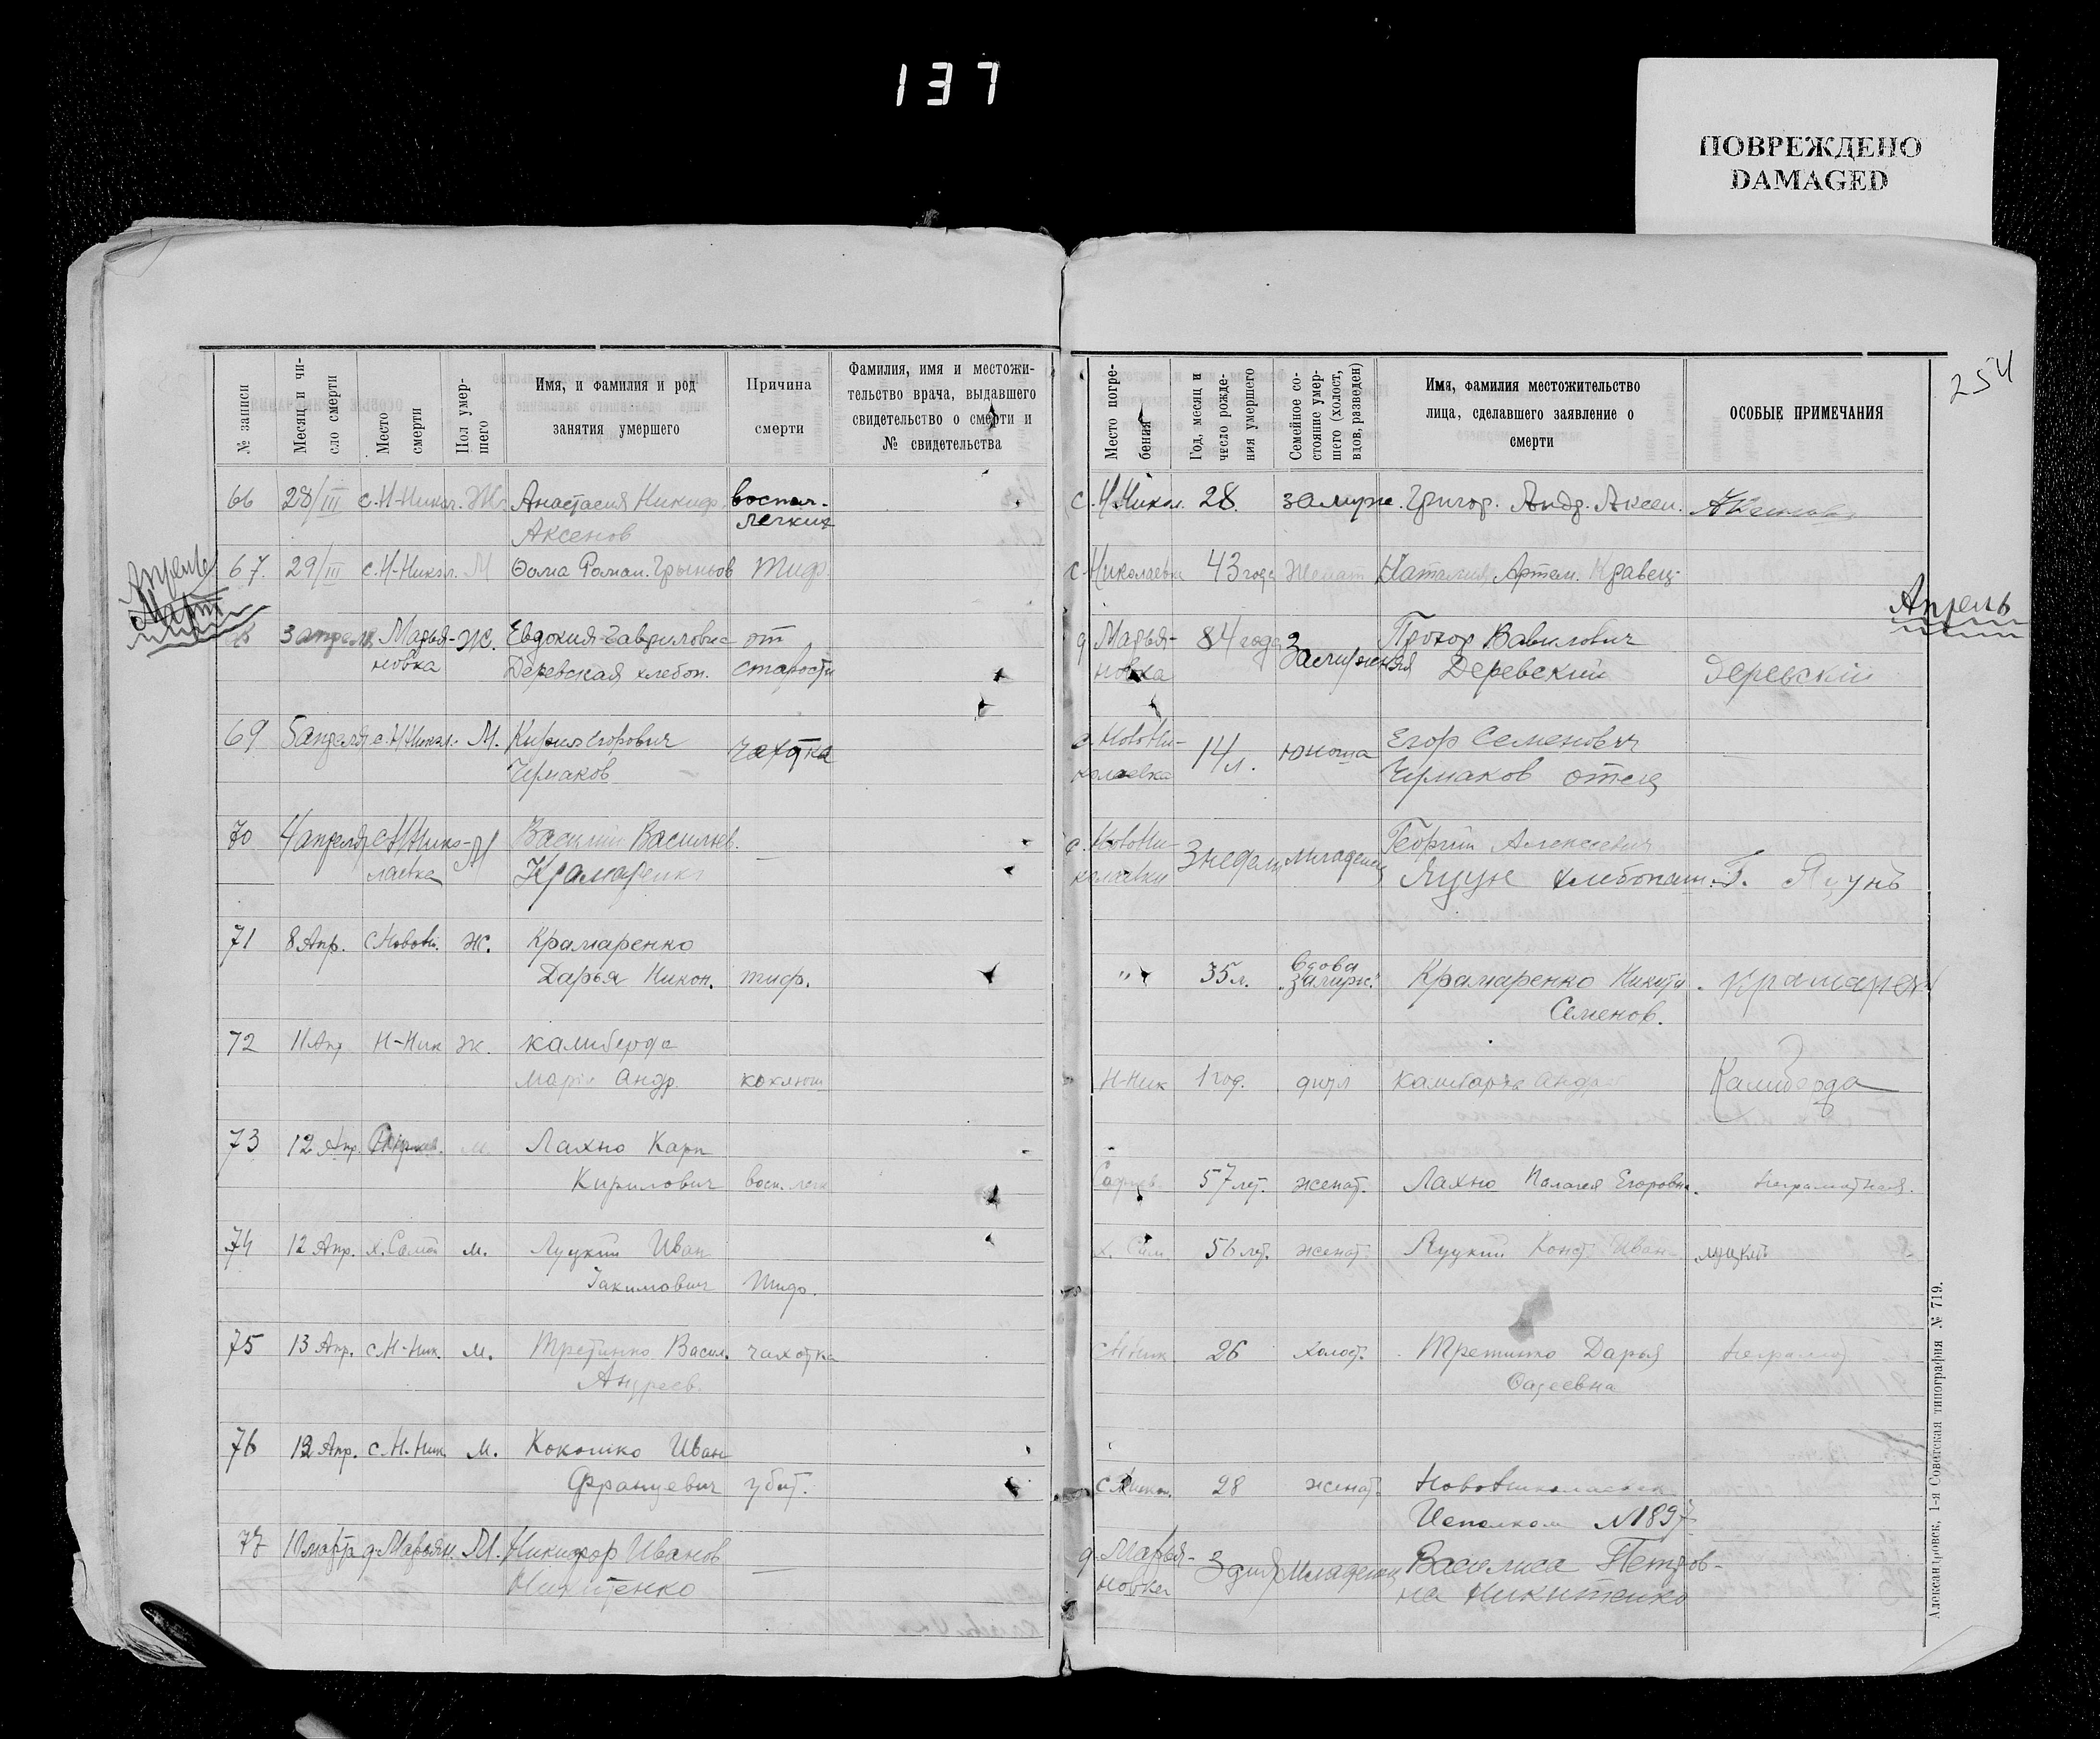 137
ПОВРЕЖДЕНО
DAMAGED
254
№ записи
Месяц и чи-
сло смерти
Место
смерти
Пол умер-
шего
Имя, и фамилия и род
занятия умершего
Причина
смерти
Фамилия, имя и местожи-
тельство врача, выдавшего
свидетельство о смерти и
№ свидетельства
Место погре-
бения
Год, месяц и
число рожде-
ния умершего
Семейное со-
стояние умер-
шего (холост,
вдов, разведен)
Имя, фамилия местожительство
лица, сделавшего заявление о
смерти
ОСОБЫЕ ПРИМЕЧАНИЯ
66 28/III с. Н-Никол. Ж. Анастасия Никиф. воспал. с. Н Никол. 28. замуж. Григор. Андр. Аксен.
легких
Аксенов
Апрель
Март
67. 29/III с. Н-Никол. М Фома Роман. Тиф с. Николаевка 43 года Женат Наталия Артем. Кравец
Апрель
3 апреля Марья- Ж. Евдокия Гавриловна от д Марья- 84 года Замужняя Прохор Вавилович
новка Деревская хлебоп. старости новка Деревский Деревский
69 5 апреля с. Н Никол. М. Кирил Егорович чахотка с. Нови- 14 л. юноша Егор Семенович
Чермаков колаевка Чермаков отец
70 4 апреля с Н Нико- М Василий Васильев. с. Нови- 3 недели младенец Георгий Алексеевич
лаевка Крамаренко колаевки Яцун хлебопаш. Г. Яцунь
71 8 Апр. с Новони. ж. Крамаренко
Дарья Никон. тиф. " 35 л. вдова замужн. Крамаренко Никита Крамарен
Семенов.
72 11 Апр Н-Ник ж. Калиберда
Мария Андр. коклюш Н-Ник 1 год. Андр Калиберда
73 12 Апр. м. Лахно Карп
Кирилович восп. легк 57 лет. женат. Лахно Палагея Егоровна. неграмотная.
74 12 Апр. х. м. Луцкий Иван х. 56 лет. женат. Луцкий Конст. Иван Луцкий
Іакимович Тиф.
75 13 Апр. с Н-Ник. м. Третинко Васил. чахотка с Н Ник 26 холост. Третинко Дарья неграмот
Андреев. Фадеевна
76 12 Апр. с. Н. Ник м. Кокошко Иван
Францевич убит. с Никол. 28 женат. Новониколаевск
Исполком №1897
77 10 марта д. Марьян. М. Никифор Иванов д. Марья- 3 дня Младенец Василиса Петров-
Никитенко новка на Никитенко
Александровск, 1-я Советская типография № 719.